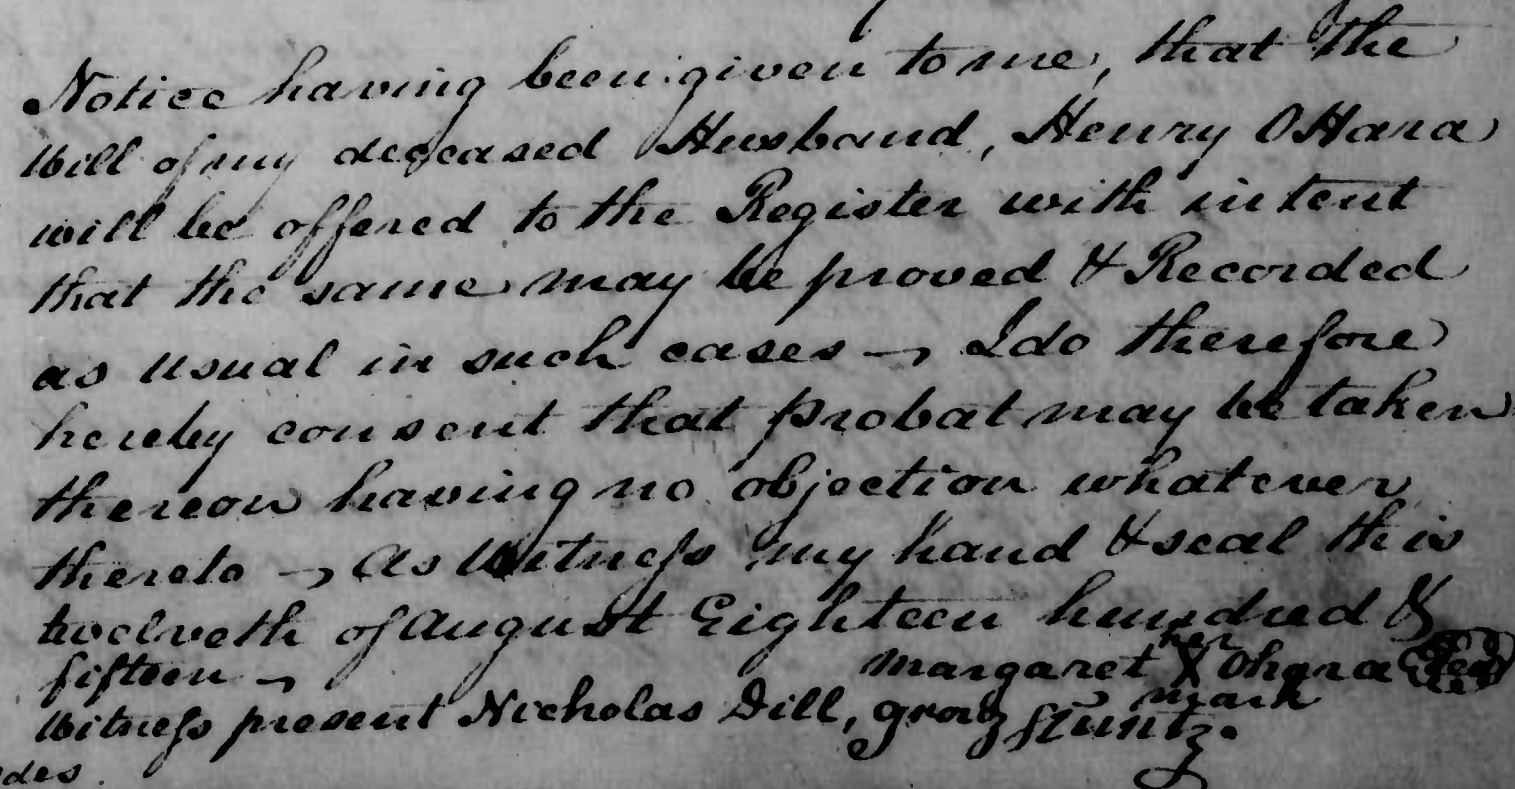 Notice having been given to me, that the
Will of my deceased Husband, Henry OHara
will be offered to the Register with intent
that the same may be proved & Recorded
as usual in such cases –, I do therefore
hereby consent that probat may be taken
thereon having no objection whatever
thereto –, As Witness my hand & seal this
twelveth of August Eighteen hundred &
fifteen –,
her
Margaret X Ohara Seal
mark
Witness present Nicholas Dill, Stuntz.